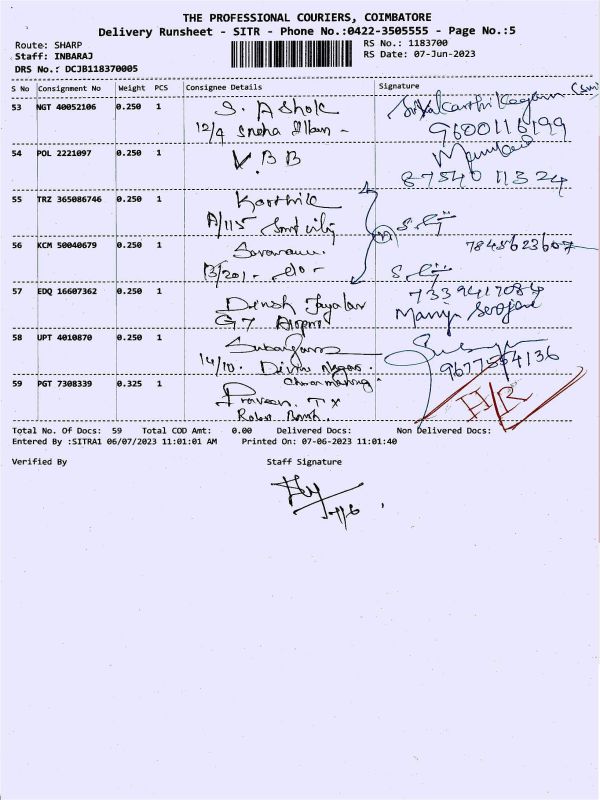 THE PROFESSIONAL COURIERS, COIMBATORE
Delivery Runsheet - SITR - Phone No.:0422-3505555 - Page No.:5
Route: SHARP
RS No.: 1183700
Staff: INBARAJ
RS Date: 07-Jun-2023
DRS No.: DCJB118370005
S No Consignment No Weight PCS Consignee Details Signature
53 NGT 40052106 0.250 1 S. Ashok
12/4 Sneha Illam -
9600116199
54 POL 2221097 0.250 1 V.B B
87540 11324
55 TRZ 365086746 0.250 1 Karthik
A/115
56 KCM 50040679 0.250 1 Saravanan
B/201 - do -
57 EDQ 16607362 0.250 1 Dinesh Jayalan
7339417084
G7
58 UPT 4010870 0.250 1
14/10. Divya Nagar
9677554136
59 PGT 7308339 0.325 1 Praveen. T X
H/R
Total No. Of Docs: 59 Total COD Amt: 0.00 Delivered Docs: Non Delivered Docs:
Entered By :SITRA1 06/07/2023 11:01:01 AM Printed On: 07-06-2023 11:01:40
Verified By Staff Signature
7/6